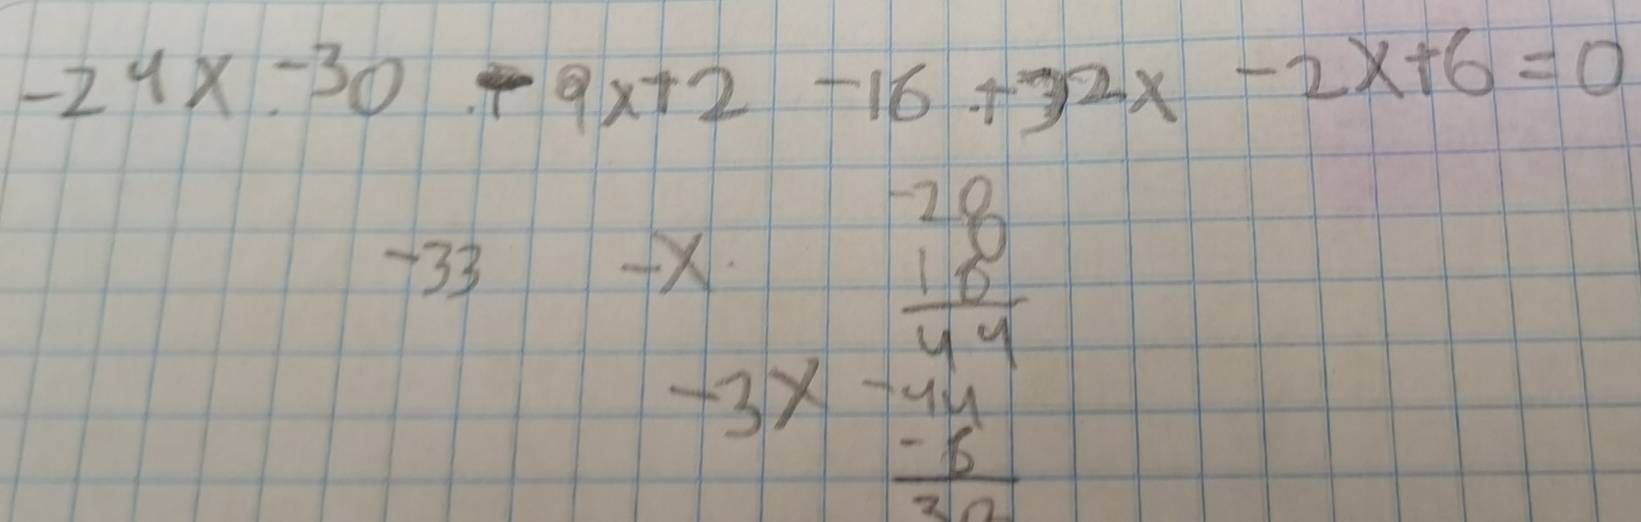 -24x -30 -9x+2 -16 +32x -2x+6=0
-33 -x
-28
16
44
-3x -44
-6